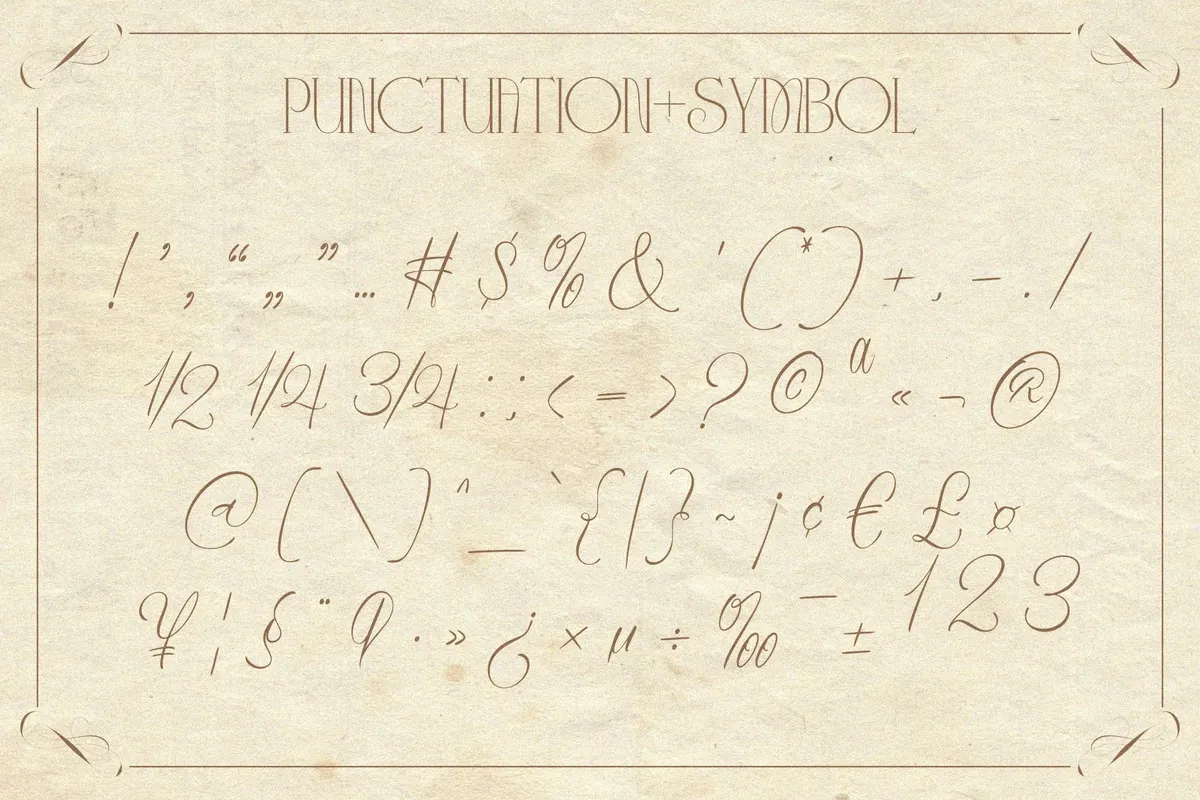 PUNCTUATION+SYMBOL
! ’ , “ „ ” … # $ % & ' ( * ) + , - . /
1/2 1/4 3/4 : ; < = > ? © ª « ¬ ®
@ [ \ ] ^ _ ` { | } ~ ¡ ¢ € £ ¤
¥ ¦ § ¨ ¶ · » ¿ × µ ÷ ‰ ¯ ± 1 2 3